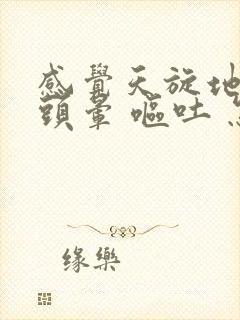 感覺天旋地
頭暈 嘔吐
缘樂